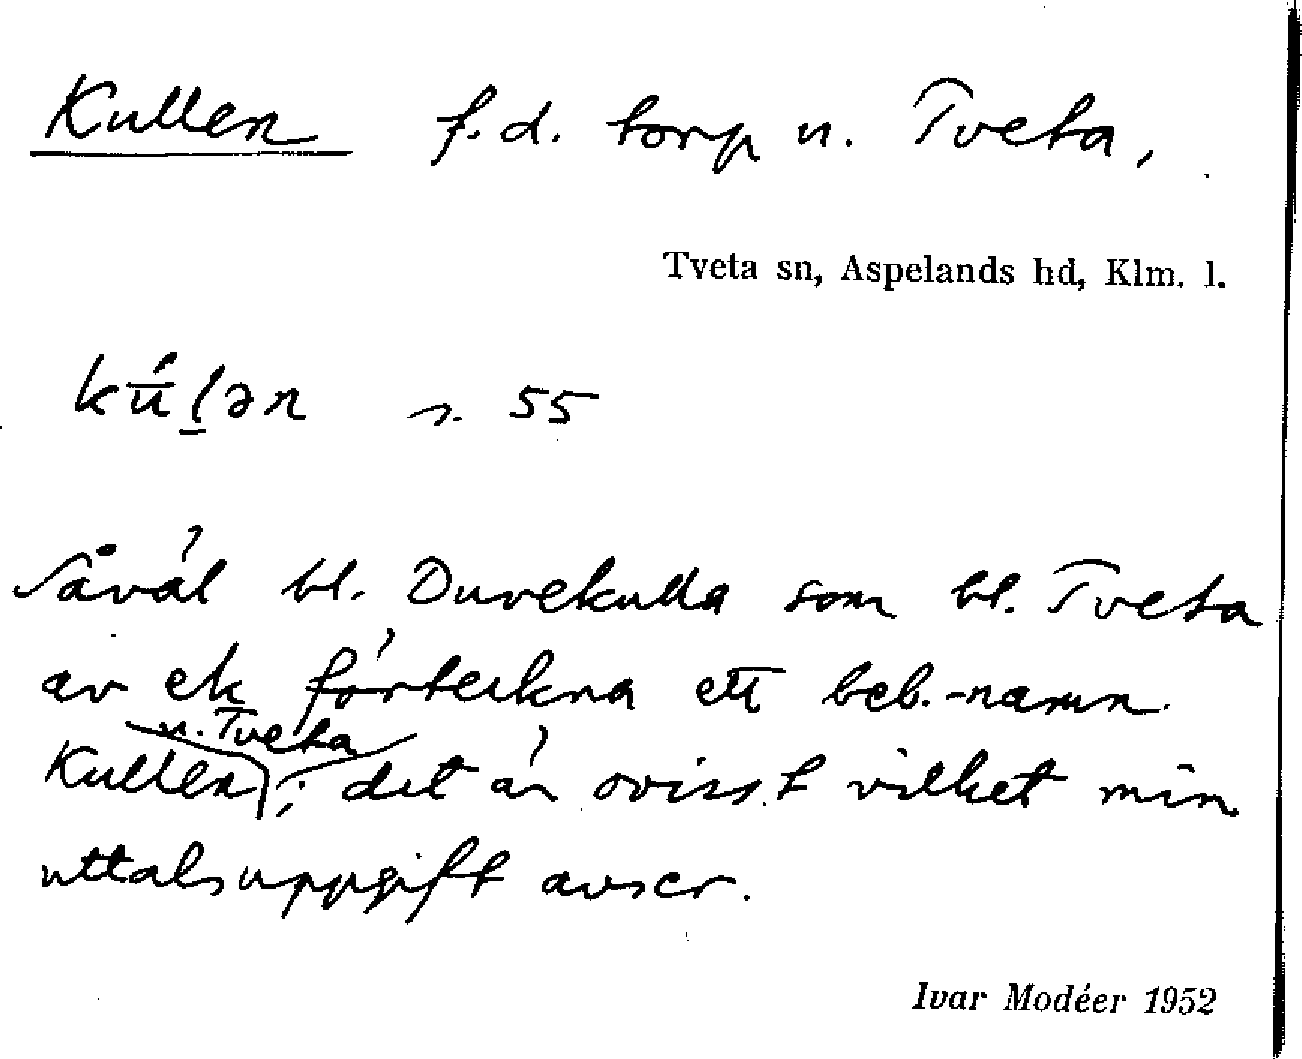 Kullen f.d. torp u. Tveta,
Tveta sn, Aspelands hd, Klm. l.
kū́ḷən s. 55
Såväl bl. Duvekulla som bl. Tveta
av ek förteckna ett beb.-namn
u. Tveta
Kullen; det är ovisst vilket min
uttalsuppgift avser.
Ivar Modéer 1952